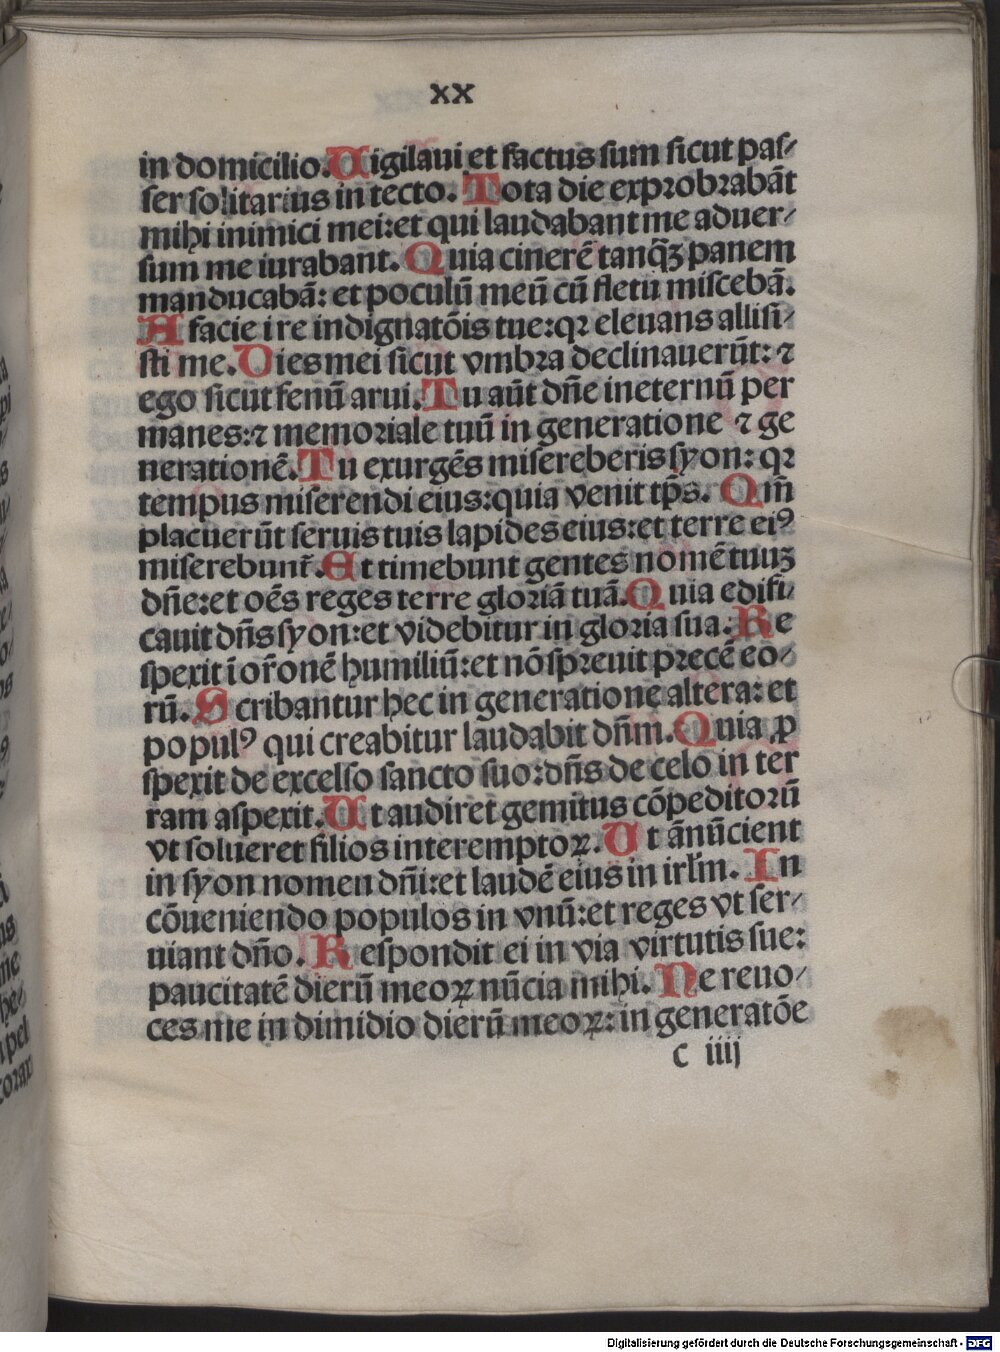 xx
in domicilio. Uigilaui et factus sum sicut pas⸗
ser solitarius in tecto. Tota die exprobrabāt
mihi inimici mei: et qui laudabant me aduer⸗
sum me iurabant. Quia cinerē tanqȝ panem
manducabā: et poculū meū cū fletu miscebā.
A facie ire indignatōis tue: qꝛ eleuans allisi⸗
sti me. Dies mei sicut vmbra declinauerūt: ⁊
ego sicut fenū arui. Tu aūt dn̄e ineternū per
manes: ⁊ memoriale tuū in generatione ⁊ ge
nerationē. Tu exurgēs misereberis syon: qꝛ
tempus miserendi eius: quia venit tp̄s. Qm̄
placuerūt seruis tuis lapides eius: et terre eiꝰ
miserebunt᷑. Et timebunt gentes nomē tuuȝ
dn̄e: et oēs reges terre gloriā tuā. Quia edifi⸗
cauit dn̄s syon: et videbitur in gloria sua. Re
spexit ī or̄onē humiliū: et nō spreuit precē eo⸗
rū. Scribantur hec in generatione altera: et
populꝰ qui creabitur laudabit dn̄m. Quia ꝓ
spexit de excelso sancto suo: dn̄s de celo in ter
ram aspexit. Ut audiret gemitus cōpeditorū
vt solueret filios interemptoꝝ. Ut ānūcient
in syon nomen dn̄i: et laudē eius in irl̄m. In
cōueniendo populos in vnū: et reges vt ser⸗
uiant dn̄o. Respondit ei in via virtutis sue:
paucitatē dierū meoꝝ nūcia mihi. Ne reuo⸗
ces me in dimidio dierū meoꝝ: in generatōe
c iiij
Digitalisierung gefördert durch die Deutsche Forschungsgemeinschaft - DFG